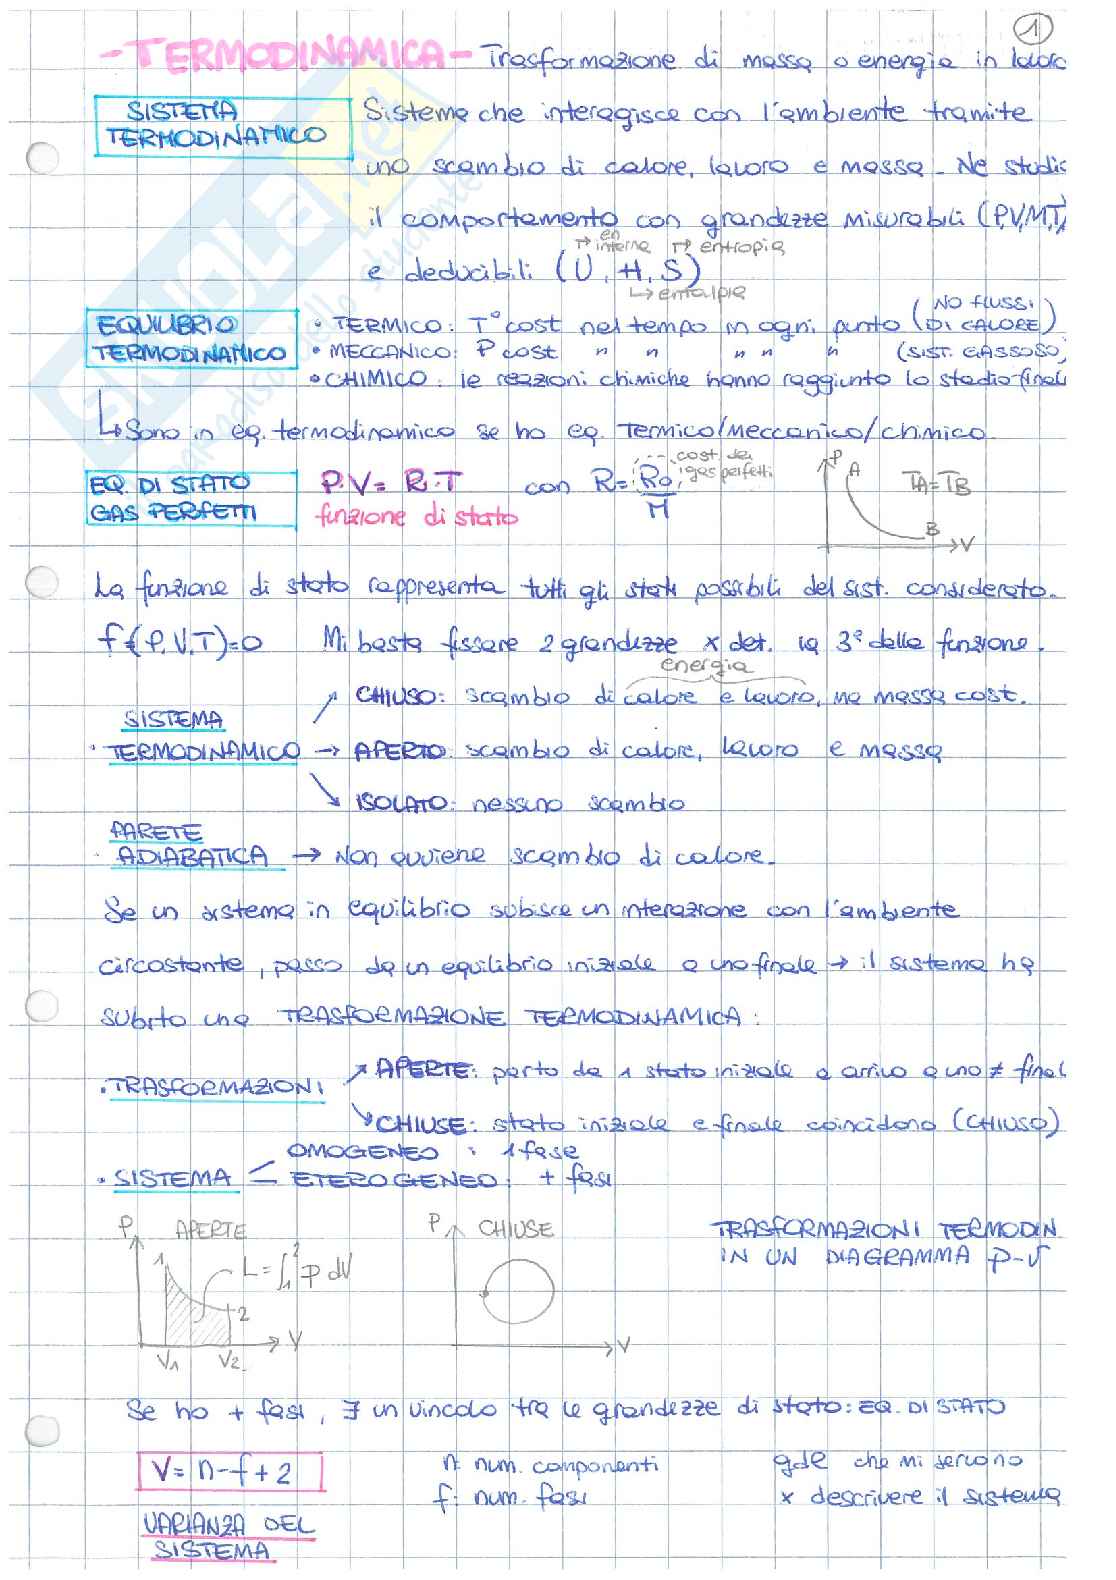 1
-TERMODINAMICA- Trasformazione di massa o energia in lavoro
SISTEMA TERMODINAMICO
Sistema che interagisce con l'ambiente tramite
uno scambio di calore, lavoro e massa. Ne studia
il comportamento con grandezze misurabili (P,V,M,T)
en interna entropia
e deducibili (U, H, S)
entalpia
EQUILIBRIO TERMODINAMICO
• TERMICO: T° cost nel tempo in ogni punto (NO FLUSSI DI CALORE)
• MECCANICO: P cost " " " " " (SIST. GASSOSO)
• CHIMICO: le reazioni chimiche hanno raggiunto lo stadio final
↳ Sono in eq. termodinamico se ho eq. Termico/meccanico/chimico.
EQ. DI STATO GAS PERFETTI
P.V = R.T con R = Ro/M
cost dei gas perfetti
funzione di stato
P A TA=TB B V
La funzione di stato rappresenta tutti gli stati possibili del sist. considerato.
f(P,V,T)=0 Mi basta fissare 2 grandezze x det. la 3° della funzione.
energia
CHIUSO: scambio di calore e lavoro, ma massa cost.
SISTEMA
• TERMODINAMICO → APERTO: scambio di calore, lavoro e massa
ISOLATO: nessuno scambio
PARETE
• ADIABATICA → Non avviene scambio di calore.
Se un sistema in equilibrio subisce un interazione con l'ambiente
circostante, passo da un equilibrio iniziale a uno finale → il sistema ha
subito una TRASFORMAZIONE TERMODINAMICA:
• TRASFORMAZIONI
APERTE: parto da 1 stato iniziale e arrivo a uno ≠ final
CHIUSE: stato iniziale e finale coincidono (CHIUSO)
OMOGENEO : 1 fase
• SISTEMA
ETEROGENEO: + fasi
P APERTE
1 L=∫₁² P dV
2
V
V1 V2
P CHIUSE
V
TRASFORMAZIONI TERMODIN.
IN UN DIAGRAMMA P-V
Se ho + fasi, ∃ un vincolo tra le grandezze di stato: EQ. DI STATO
V= n-f+2
n: num. componenti
f: num. fasi
gde che mi servono
x descrivere il sistema
VARIANZA DEL
SISTEMA
SKUOLA.net